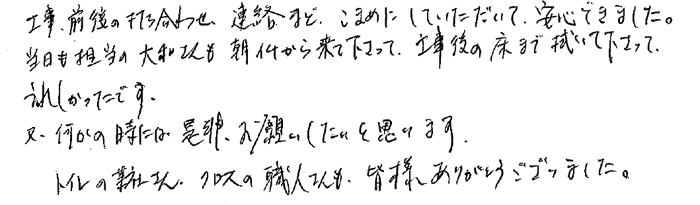 工事、前後の打ち合わせ、連絡など、こまめにしていただいて、安心できました。
当日も担当の大和さんも朝イチから来て下さって、工事後の床まで拭いて下さって、
うれしかったです。
又、何かの時には是非、お願いしたいと思います。
トイレの業社さん、クロスの職人さんも、皆様ありがとうございました。